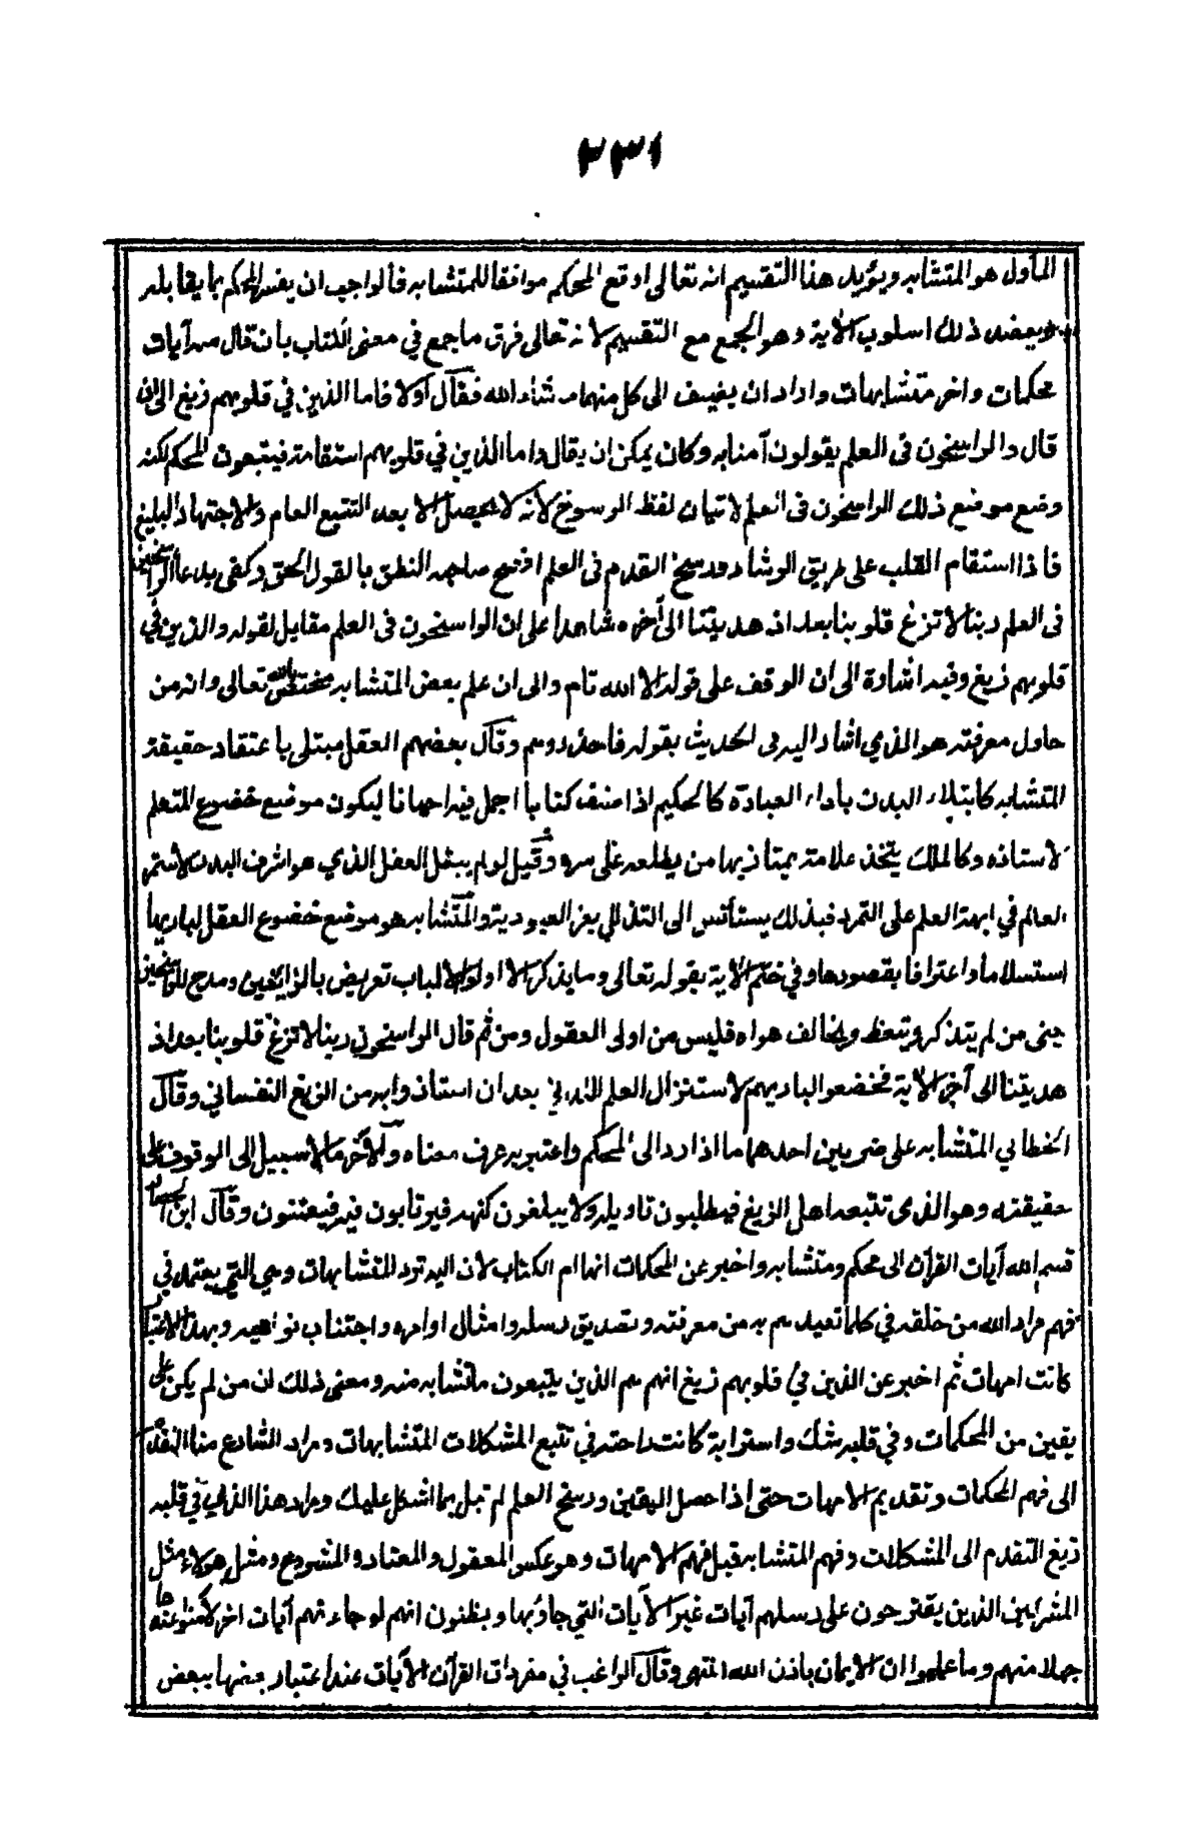 ٢٣١
المأول هو المتشابه ويؤيد هذا التقسيم انه تعالى اوقع المحكم موافقا للمتشابه فالواجب ان يفسر المحكم بما يقابله
ويعضد ذلك اسلوب الآية وهو الجمع مع التقسيم لانه تعالى فرق ما جمع في معنى الكتاب بان قال منه آيات
محكمات واخر متشابهات واراد ان يضيف الى كل منهما ما شاء الله فقال اولا فاما الذين في قلوبهم زيغ الى ان
قال والراسخون في العلم يقولون آمنا به وكان يمكن ان يقال واما الذين في قلوبهم استقامة فيتبعون المحكم لكنه
وضع موضع ذلك الراسخون في العلم لاتيان لفظ الرسوخ لانه لا يحصل الا بعد التتبع العام والاجتهاد البليغ
فاذا استقام القلب على طريق الرشاد ورسخ القدم في العلم افصح صاحبه النطق بالقول الحق وكفى بدعاء الراسخين
في العلم ربنا لا تزغ قلوبنا بعد اذ هديتنا الى آخره شاهدا على ان الراسخون في العلم مقابل لقوله والذين في
قلوبهم زيغ وفيه اشارة الى ان الوقف على قوله الا الله تام والى ان علم بعض المتشابه مختص بالله تعالى وان من
حاول معرفته هو الذي اشار اليه في الحديث بقوله فاحذروهم وقال بعضهم العقل مبتلى باعتقاد حقيقة
المتشابه كابتلاء البدن باداء العبادة كالحكيم اذا صنف كتابا اجمل فيه احيانا ليكون موضع خضوع المتعلم
لاستاذه وكالملك يتخذ علامة يمتاز بها من يطلعه على سره وقيل لو لم يبتل العقل الذي هو اشرف البدن لاستمر
العالم في ابهة العلم على التمرد فبذلك يستأنس الى التذلل بعز العبودية والمتشابه هو موضع خضوع العقل لباريها
استسلاما واعترافا بقصورها وفي ختم الآية بقوله تعالى وما يذكر الا اولوا الالباب تعريض بالزائغين ومدح للراسخين
يعني من لم يتذكر ويتعظ ويخالف هواه فليس من اولى العقول ومن ثم قال الراسخون ربنا لا تزغ قلوبنا بعد اذ
هديتنا الى آخر الآية فخضعوا لباريهم لاستنزال العلم اللدني بعد ان استاذوا به من الزيغ النفساني وقال
الخطابي المتشابه على ضربين احدهما ما اذا رد الى المحكم واعتبر به عرف معناه والآخر ما لا سبيل الى الوقوف على
حقيقته وهو الذي تتبعه اهل الزيغ فيطلبون تاويله ولا يبلغون كنهه فيرتابون فيه فيفتنون وقال ابن الحصار
قسم الله آيات القرآن الى محكم ومتشابه واخبر عن المحكمات انها ام الكتاب لان اليه ترد المتشابهات وهي التي يعتمد في
فهم مراد الله من خلقه في كلما تعبدهم به من معرفته وتصديق رسله وامتثال اوامره واجتناب نواهيه وبهذا الاعتبار
كانت امهات ثم اخبر عن الذين في قلوبهم زيغ انهم هم الذين يتبعون ما تشابه منه ومعنى ذلك ان من لم يكن على
يقين من المحكمات وفي قلبه شك واسترابة كانت راحته في تتبع المشكلات المتشابهات ومراد الشارع منا التقدم
الى فهم المحكمات وتقديم الامهات حتى اذا حصل اليقين ورسخ العلم لم تبل بما اشكل عليك ومراد هذا الذي في قلبه
زيغ التقدم الى المشكلات وفهم المتشابه قبل فهم الامهات وهو عكس المعقول والمعتاد والمشروع ومثل هؤلاء مثل
المشركين الذين يقترحون على رسلهم آيات غير الآيات التي جاؤبها ويظنون انهم لو جاءتهم آيات اخر لآمنوا عندها
جهلا منهم وما علموا ان الايمان باذن الله انتهى وقال الراغب في مفردات القرآن الآيات عند اعتبار بعضها ببعض